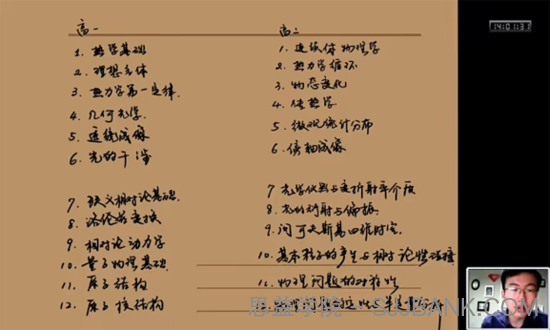 高一
1. 热学基础
2. 理想气体
3. 热力学第一定律.
4. 几何光学.
5. 连续成像
6. 光的干涉
7. 狭义相对论基础.
8. 洛伦兹变换
9. 相对论动力学
10. 量子物理基础.
11. 原子结构
12. 原子核结构
高二
1. 连续体物理学
2. 热力学循环
3. 物态变化
4. 传热学
5. 微观统计分布
6. 傍轴成像
7. 光学仪器与变折射率介质
8. 光的衍射与偏振
9. 闵可夫斯基四维时空
10. 基本粒子的产生与相对论性碰撞
11. 物理问题的对称性
14:01:37
思盟学院 - SJJBANK.COM